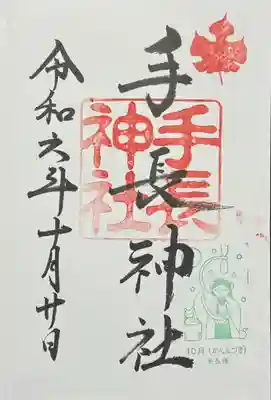 手長神社
手長
神社
令和六年十月廿日
10月(かんなづき)